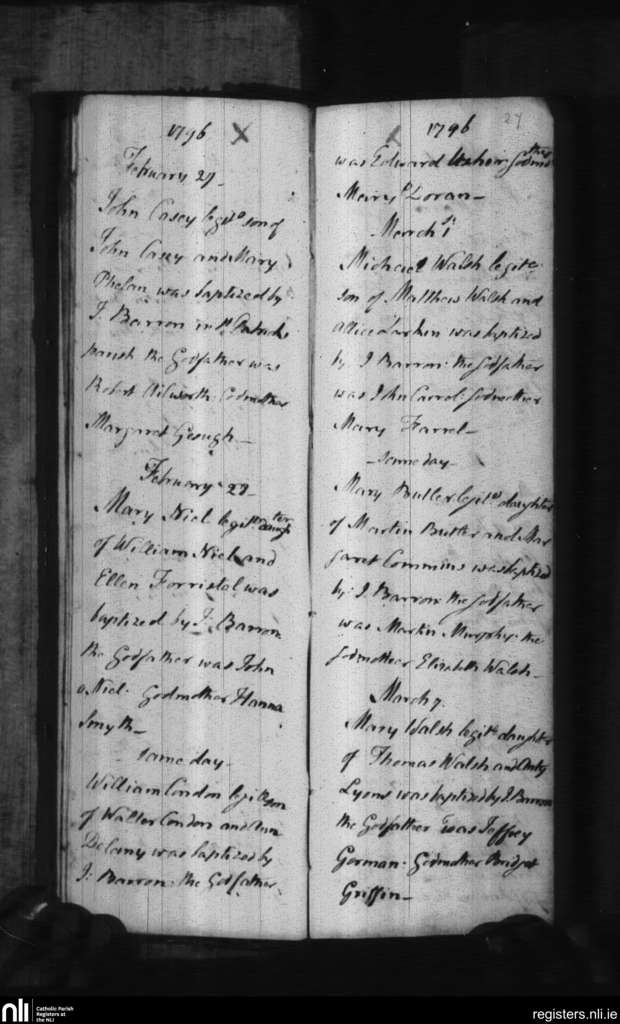 1796 X
February 27-
John Casey legit. son of
John Casey and Mary
Phelan was baptized by
J. Barron in St. Patricks
parish the Godfather was
Robert Godmother
Margaret Geough-
February 29-
Mary Niel legit. daughter
of William Niel and
Ellen Forristal was
baptized by J. Barron
the Godfather was John
o Niel: Godmother Hanna
Smyth-
same day-
William Condon legit. son
of Walter Condon and Ann
Delany was baptized by
J: Barron: the Godfather
27
X 1796
was Edward Godmother
Mary Doran-
March 1st
Michael Walsh legite
son of Matthew Walsh and
Allice Larkin was baptized
by J Barron: the Godfather
was John Carrol: Godmother
Mary Farrel-
same day-
Mary Butler legit. daughter
of Martin Butler and Mar
garet Commins was baptized
by: J. Barron the Godfather
was Martin Murphy: the
Godmother Elizabeth Walsh-
March 7.
Mary Walsh legit. daughter
of Thomas Walsh and
Lyons was baptized by J. Barron
the Godfather was Jeffrey
Gorman: Godmother Bridget
Griffin-
nli Catholic Parish
Registers at
the NLI
registers.nli.ie